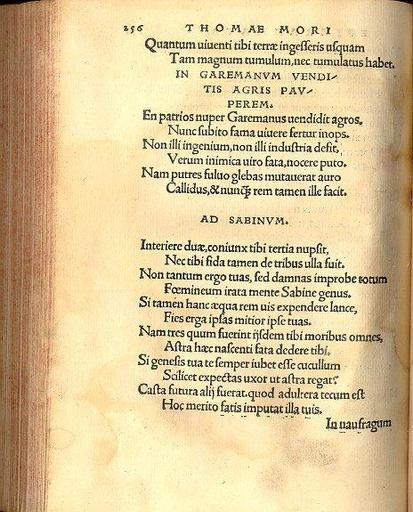 256 THOMAE MORI
Quantum uiuenti tibi terræ ingesseris usquam
Tam magnum tumulum, nec tumulatus habet.
IN GAREMANVM VENDI/
TIS AGRIS PAV/
PEREM.
En patrios nuper Garemanus uendidit agros,
Nunc subito fama uiuere fertur inops.
Non illi ingenium, non illi industria desit,
Verum inimica uiro fata, nocere puto.
Nam putres fuluo glebas mutauerat auro
Callidus, & nunꝗ rem tamen ille facit.
AD SABINVM.
Interiere duæ, coniunx tibi tertia nupsit,
Nec tibi fida tamen de tribus ulla fuit.
Non tantum ergo tuas, sed damnas improbe totum
Fœmineum irata mente Sabine genus.
Si tamen hanc æqua rem uis expendere lance,
Fies erga ipsas mitior ipse tuas.
Nam tres quum fuerint ijsdem tibi moribus omnes,
Astra hæc nascenti fata dedere tibi,
Si genesis tua te semper iubet esse cucullum
Scilicet expectas uxor ut astra regat?
Casta futura alij fuerat. quod adultera tecum est
Hoc merito fatis imputat illa tuis.
In naufragum